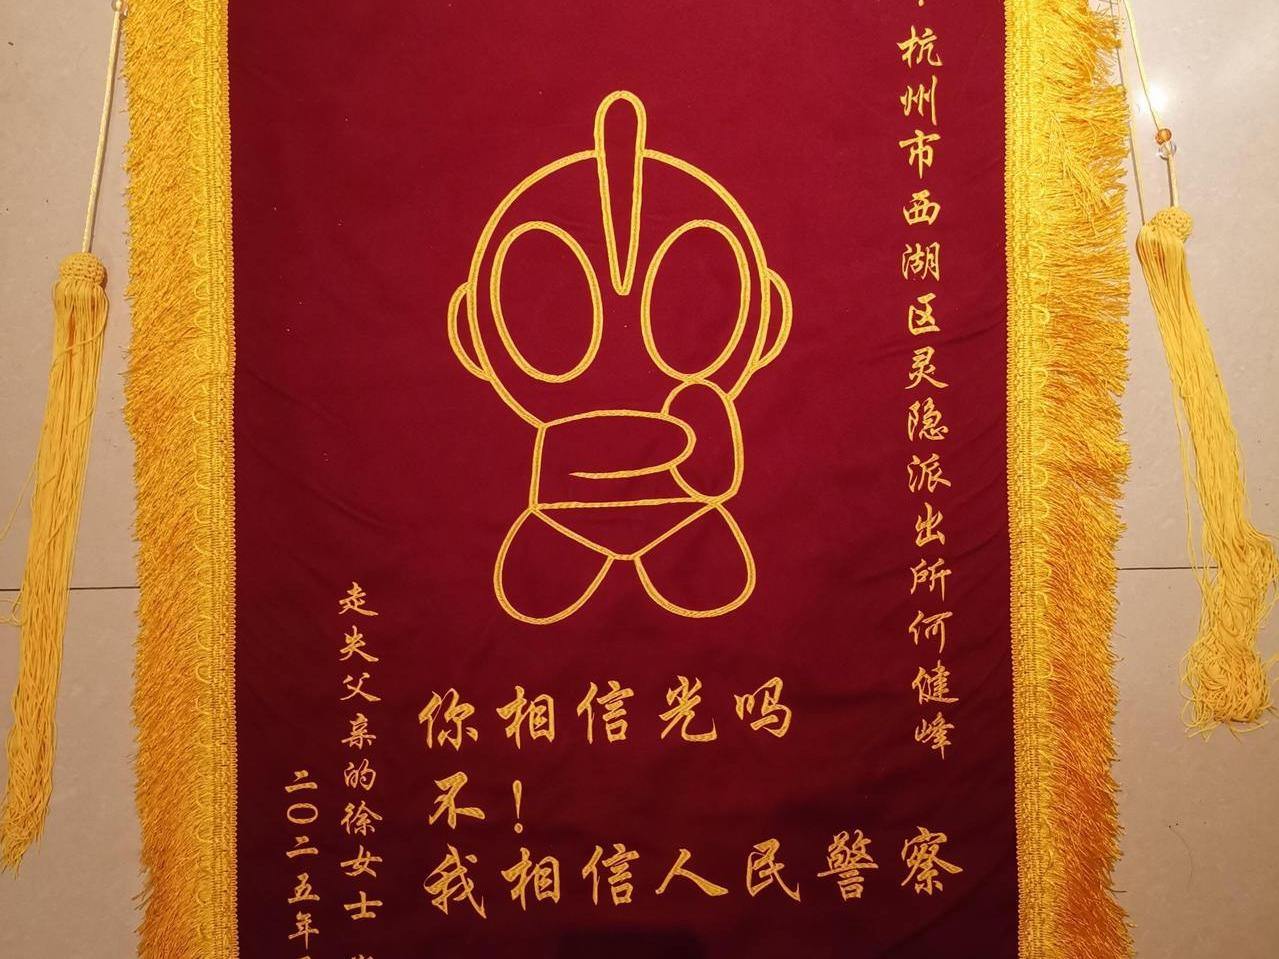 杭州市西湖区灵隐派出所何健峰
你相信光吗
不！
我相信人民警察
走失父亲的徐女士
二〇二五年